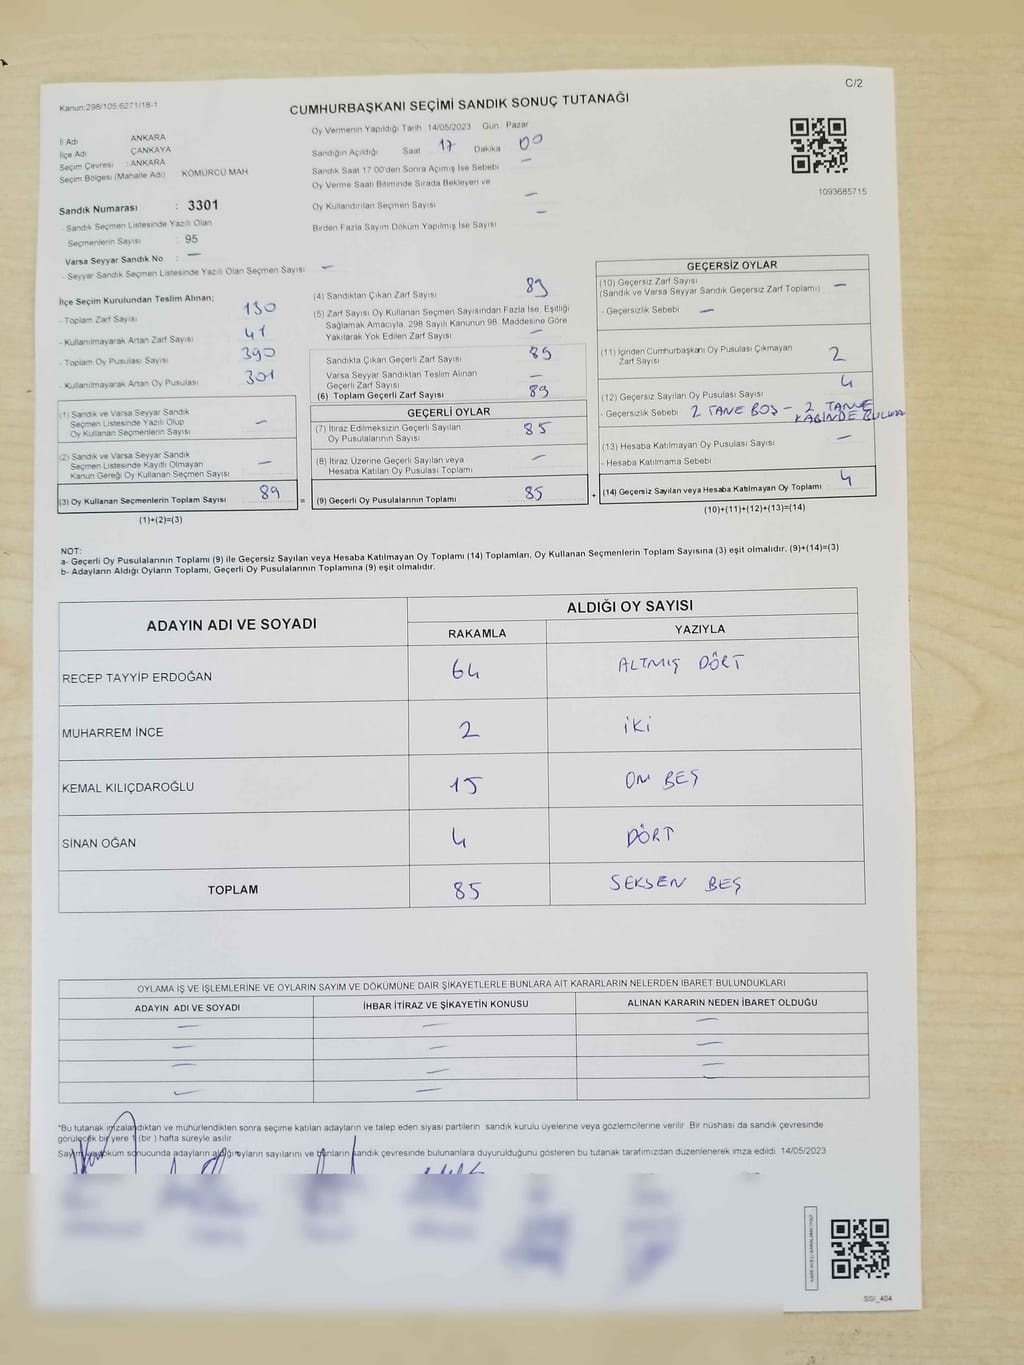 C/2
Kanun:298/105,6271/18-1
CUMHURBAŞKANI SEÇİMİ SANDIK SONUÇ TUTANAĞI
İl Adı : ANKARA
İlçe Adı : ÇANKAYA
Seçim Çevresi : ANKARA
Seçim Bölgesi (Mahalle Adı) : KÖMÜRCÜ MAH
Sandık Numarası : 3301
- Sandık Seçmen Listesinde Yazılı Olan
Seçmenlerin Sayısı : 95
Varsa Seyyar Sandık No : —
- Seyyar Sandık Seçmen Listesinde Yazılı Olan Seçmen Sayısı —
Oy Vermenin Yapıldığı Tarih 14/05/2023 Gün Pazar
Sandığın Açıldığı Saat 17 Dakika 00
Sandık Saat 17:00'den Sonra Açımış İse Sebebi —
Oy Verme Saati Bitiminde Sırada Bekleyen ve
Oy Kullandırılan Seçmen Sayısı —
Birden Fazla Sayım Döküm Yapılmış İse Sayısı —
1093685715
İlçe Seçim Kurulundan Teslim Alınan;
- Toplam Zarf Sayısı 130
- Kullanılmayarak Artan Zarf Sayısı 41
- Toplam Oy Pusulası Sayısı 390
- Kullanılmayarak Artan Oy Pusulası 301
(1) Sandık ve Varsa Seyyar Sandık
Seçmen Listesinde Yazılı Olup
Oy Kullanan Seçmenlerin Sayısı —
(2) Sandık ve Varsa Seyyar Sandık
Seçmen Listesinde Kayıtlı Olmayan
Kanun Gereği Oy Kullanan Seçmen Sayısı —
(3) Oy Kullanan Seçmenlerin Toplam Sayısı 89 =
(1)+(2)=(3)
(4) Sandıktan Çıkan Zarf Sayısı 89
(5) Zarf Sayısı Oy Kullanan Seçmen Sayısından Fazla İse, Eşitliği
Sağlamak Amacıyla, 298 Sayılı Kanunun 98. Maddesine Göre
Yakılarak Yok Edilen Zarf Sayısı —
Sandıkta Çıkan Geçerli Zarf Sayısı 89
Varsa Seyyar Sandıktan Teslim Alınan
Geçerli Zarf Sayısı —
(6) Toplam Geçerli Zarf Sayısı 89
GEÇERLİ OYLAR
(7) İtiraz Edilmeksizin Geçerli Sayılan
Oy Pusulalarının Sayısı 85
(8) İtiraz Üzerine Geçerli Sayılan veya
Hesaba Katılan Oy Pusulası Toplamı —
(9) Geçerli Oy Pusulalarının Toplamı 85 +
GEÇERSİZ OYLAR
(10) Geçersiz Zarf Sayısı
(Sandık ve Varsa Seyyar Sandık Geçersiz Zarf Toplamı) —
- Geçersizlik Sebebi —
(11) İçinden Cumhurbaşkanı Oy Pusulası Çıkmayan
Zarf Sayısı 2
(12) Geçersiz Sayılan Oy Pusulası Sayısı 4
- Geçersizlik Sebebi 2 TANE BOŞ - 2 TANE
KABİNDE
(13) Hesaba Katılmayan Oy Pusulası Sayısı —
- Hesaba Katılmama Sebebi
(14) Geçersiz Sayılan veya Hesaba Katılmayan Oy Toplamı 4
(10)+(11)+(12)+(13)=(14)
NOT:
a- Geçerli Oy Pusulalarının Toplamı (9) ile Geçersiz Sayılan veya Hesaba Katılmayan Oy Toplamı (14) Toplamları, Oy Kullanan Seçmenlerin Toplam Sayısına (3) eşit olmalıdır. (9)+(14)=(3)
b- Adayların Aldığı Oyların Toplamı, Geçerli Oy Pusulalarının Toplamına (9) eşit olmalıdır.
ADAYIN ADI VE SOYADI
ALDIĞI OY SAYISI
RAKAMLA YAZIYLA
RECEP TAYYİP ERDOĞAN 64 ALTMIŞ DÖRT
MUHARREM İNCE 2 İKİ
KEMAL KILIÇDAROĞLU 15 ON BEŞ
SİNAN OĞAN 4 DÖRT
TOPLAM 85 SEKSEN BEŞ
OYLAMA İŞ VE İŞLEMLERİNE VE OYLARIN SAYIM VE DÖKÜMÜNE DAİR ŞİKAYETLERLE BUNLARA AİT KARARLARIN NELERDEN İBARET BULUNDUKLARI
ADAYIN ADI VE SOYADI İHBAR İTİRAZ VE ŞİKAYETİN KONUSU ALINAN KARARIN NEDEN İBARET OLDUĞU
— — —
— — —
— — —
— —
*Bu tutanak imzalandıktan ve mühürlendikten sonra seçime katılan adayların ve talep eden siyasi partilerin sandık kurulu üyelerine veya gözlemcilerine verilir. Bir nüshası da sandık çevresinde
görülecek bir yere 1 (bir ) hafta süreyle asılır.
Sayım ve döküm sonucunda adayların aldığı oyların sayılarını ve bunların sandık çevresinde bulunanlara duyurulduğunu gösteren bu tutanak tarafımızdan düzenlenerek imza edildi. 14/05/2023
SSI_404